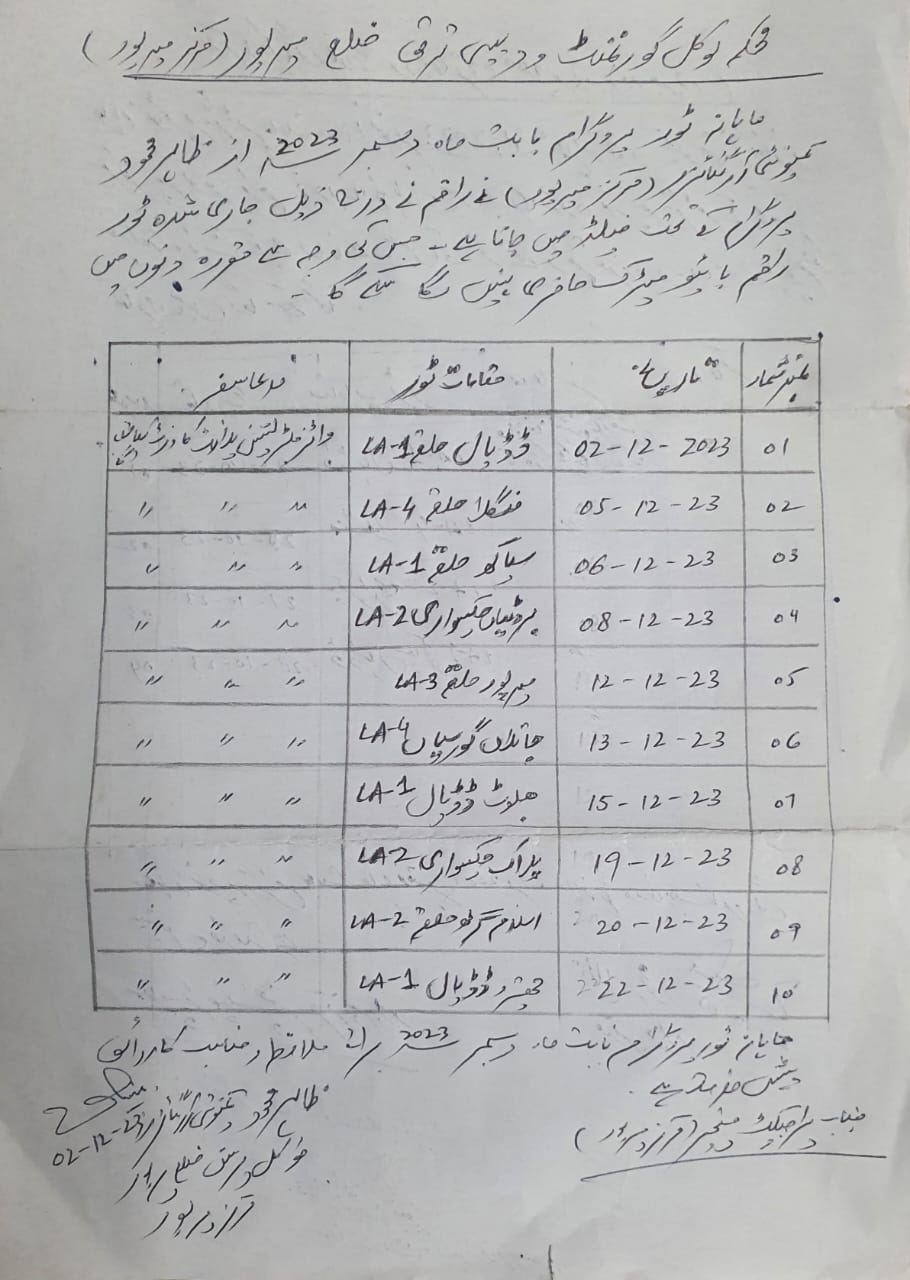 محکمہ لوکل گورنمنٹ و دیہی ترقی ضلع میرپور (مرکز میرپور)
ماہانہ ٹور پروگرام بابت ماہ دسمبر 2023ء از طاہر محمود
کمیونٹی آرگنائزر (مرکز میرپور) نے راقم نے درج ذیل جاری شدہ ٹور
پروگرام کے تحت فیلڈ میں جانا ہے۔ جس کی وجہ سے مقررہ دنوں میں
راقم بائیو میٹرک حاضری نہیں لگا سکے گا۔
نمبر شمار تاریخ مقامات ٹور مدعا سفر
01 02-12-2023 ڈڈیال حلقہ LA-1 واٹر فلٹریشن پلانٹ کا
02 05-12-23 منگلا حلقہ LA-4 " " "
03 06-12-23 سیاکھ حلقہ LA-1 " " "
04 08-12-23 چکسواری LA-2 " " "
05 12-12-23 میرپور حلقہ LA-3 " " "
06 13-12-23 جاتلاں گورسیاں LA-4 " " "
07 15-12-23 ڈڈیال LA-1 " " "
08 19-12-23 پلاک چکسواری LA-2 " " "
09 20-12-23 اسلام گڑھ حلقہ LA-2 " " "
10 22-12-23 ڈڈیال LA-1 " " "
ماہانہ ٹور پروگرام بابت ماہ دسمبر 2023ء برائے ملاحظہ و مناسب کاروائی
پیش خدمت ہے۔
جناب پراجیکٹ مینجر (مرکز میرپور)
طاہر محمود کمیونٹی آرگنائزر
02-12-23
مرکز میرپور